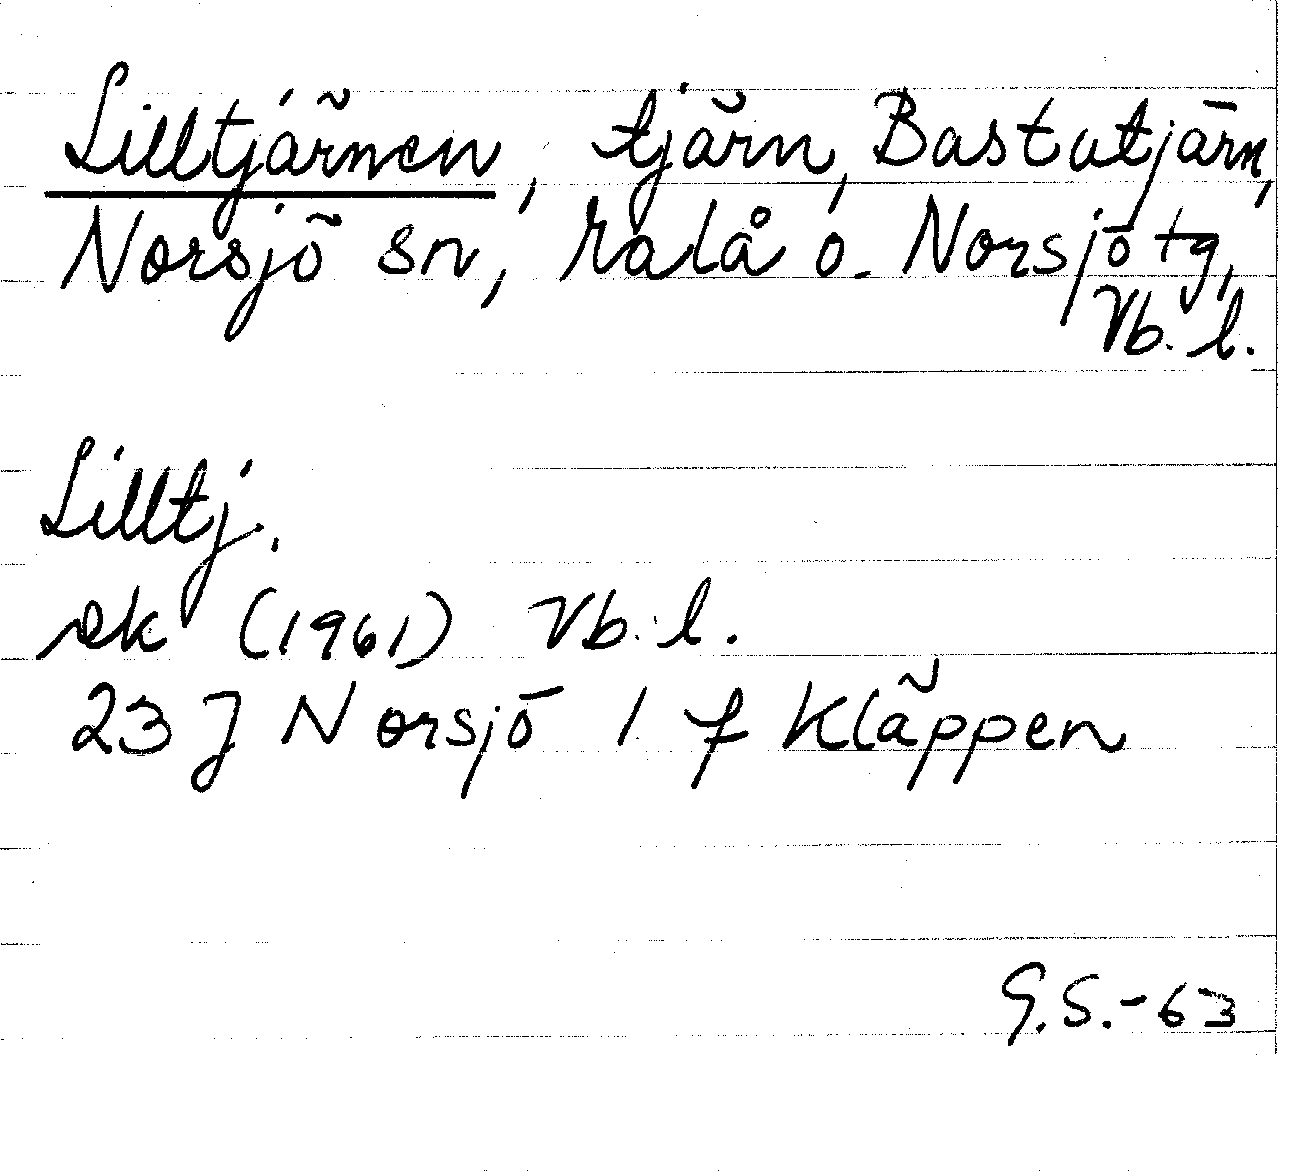 Lilltjärnen, tjärn, Bastutjärn,
Norsjö sn, Malå o. Norsjö tg,
Vb. l.
Lilltj.
ek (1961) Vb. l.
23 J Norsjö 1 f Kläppen
G.S.-63